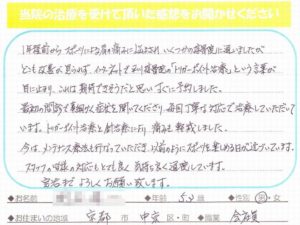 当院の治療を受けて頂いた感想をお聞かせください
1年程前からスポーツによる肩の痛みに悩まされ いくつかの接骨院に通いましたが
とも改善が見られず、インターネットで
「トリガーポイント治療」という言葉が
目に止まり、これは期待できそうだと思い すぐに予約しました。
最初の問診も事細かく症状を聞いてくださり、毎回丁寧な対応で治療していただいて
います。トリガーポイント治療と鍼治療により 痛みも軽減しました。
今は、メンテナンス療法も行なっていただき、以前のようにスポーツを楽しめる日が近づいています。
スタッフの皆様の対応もとても良く 気持ち良く通院しています。
完治まで よろしくお願い致します。
●お名前 ●年齢 53才 ●性別 男・女
●お住まいの地域 京都 市 中京 区・町 ●職業 会社員